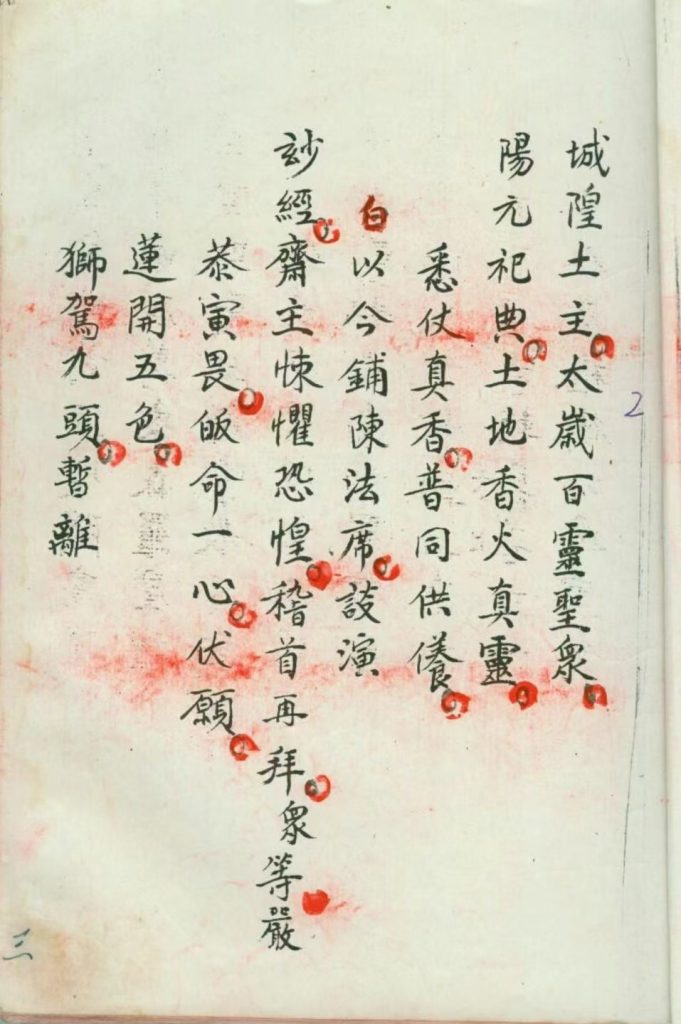 城隍土主太嵗百靈聖衆
陽元祀典土地香火真靈
悉仗真香普同供養
白以今鋪陳法席談演
玅經齋主悚懼恐惶稽首再拜衆等嚴
恭寅畏皈命一心伏願
蓮開五色
獅駕九頭暫離
2
三